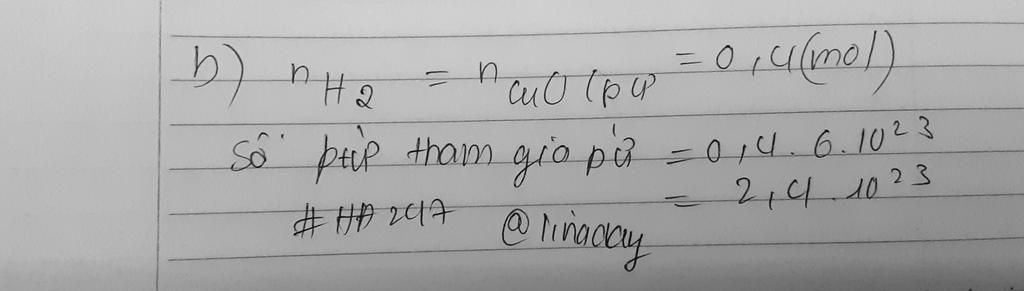 b) nH2 = nCuO(pứ) = 0,4(mol)
Số ptử tham gia pứ = 0,4 . 6.10²³
= 2,4 . 10²³
#HĐ247 @linaday